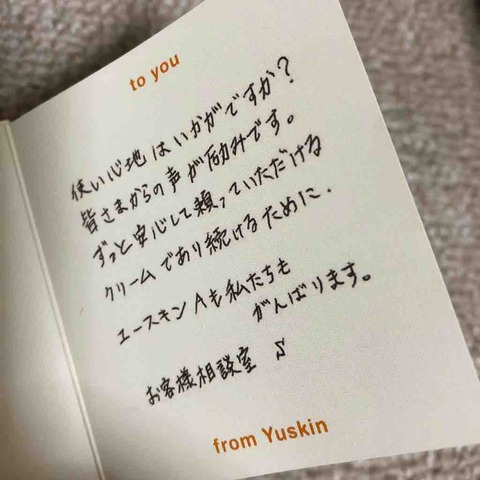 to you
使い心地はいかがですか？
皆さまからの声が励みです。
ずっと安心して頼っていただける
クリームであり続けるために．
ユースキンAも私たちも
がんばります。
お客様相談室 S
from Yuskin